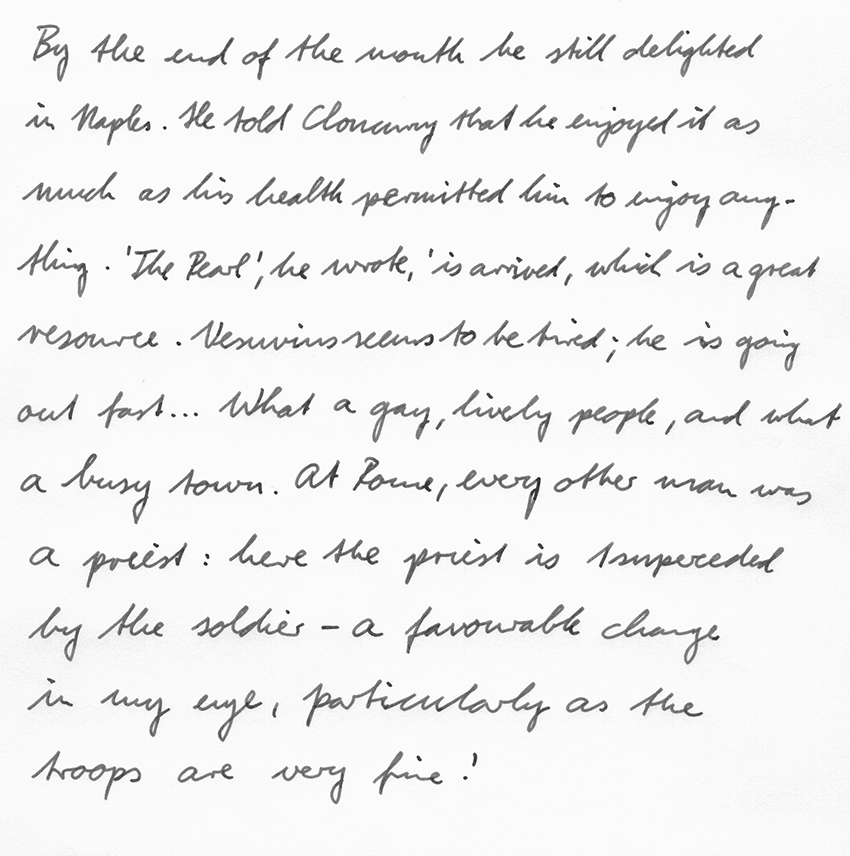 By the end of the month he still delighted
in Naples. He told Cloncurry that he enjoyed it as
much as his health permitted him to enjoy any-
thing. 'The Pearl', he wrote, 'is arrived, which is a great
resource. Vesuvius seems to be tired; he is going
out fast... What a gay, lively people, and what
a busy town. At Rome, every other man was
a priest: here the priest is superceded
by the soldier – a favourable change
in my eye, particularly as the
troops are very fine.'